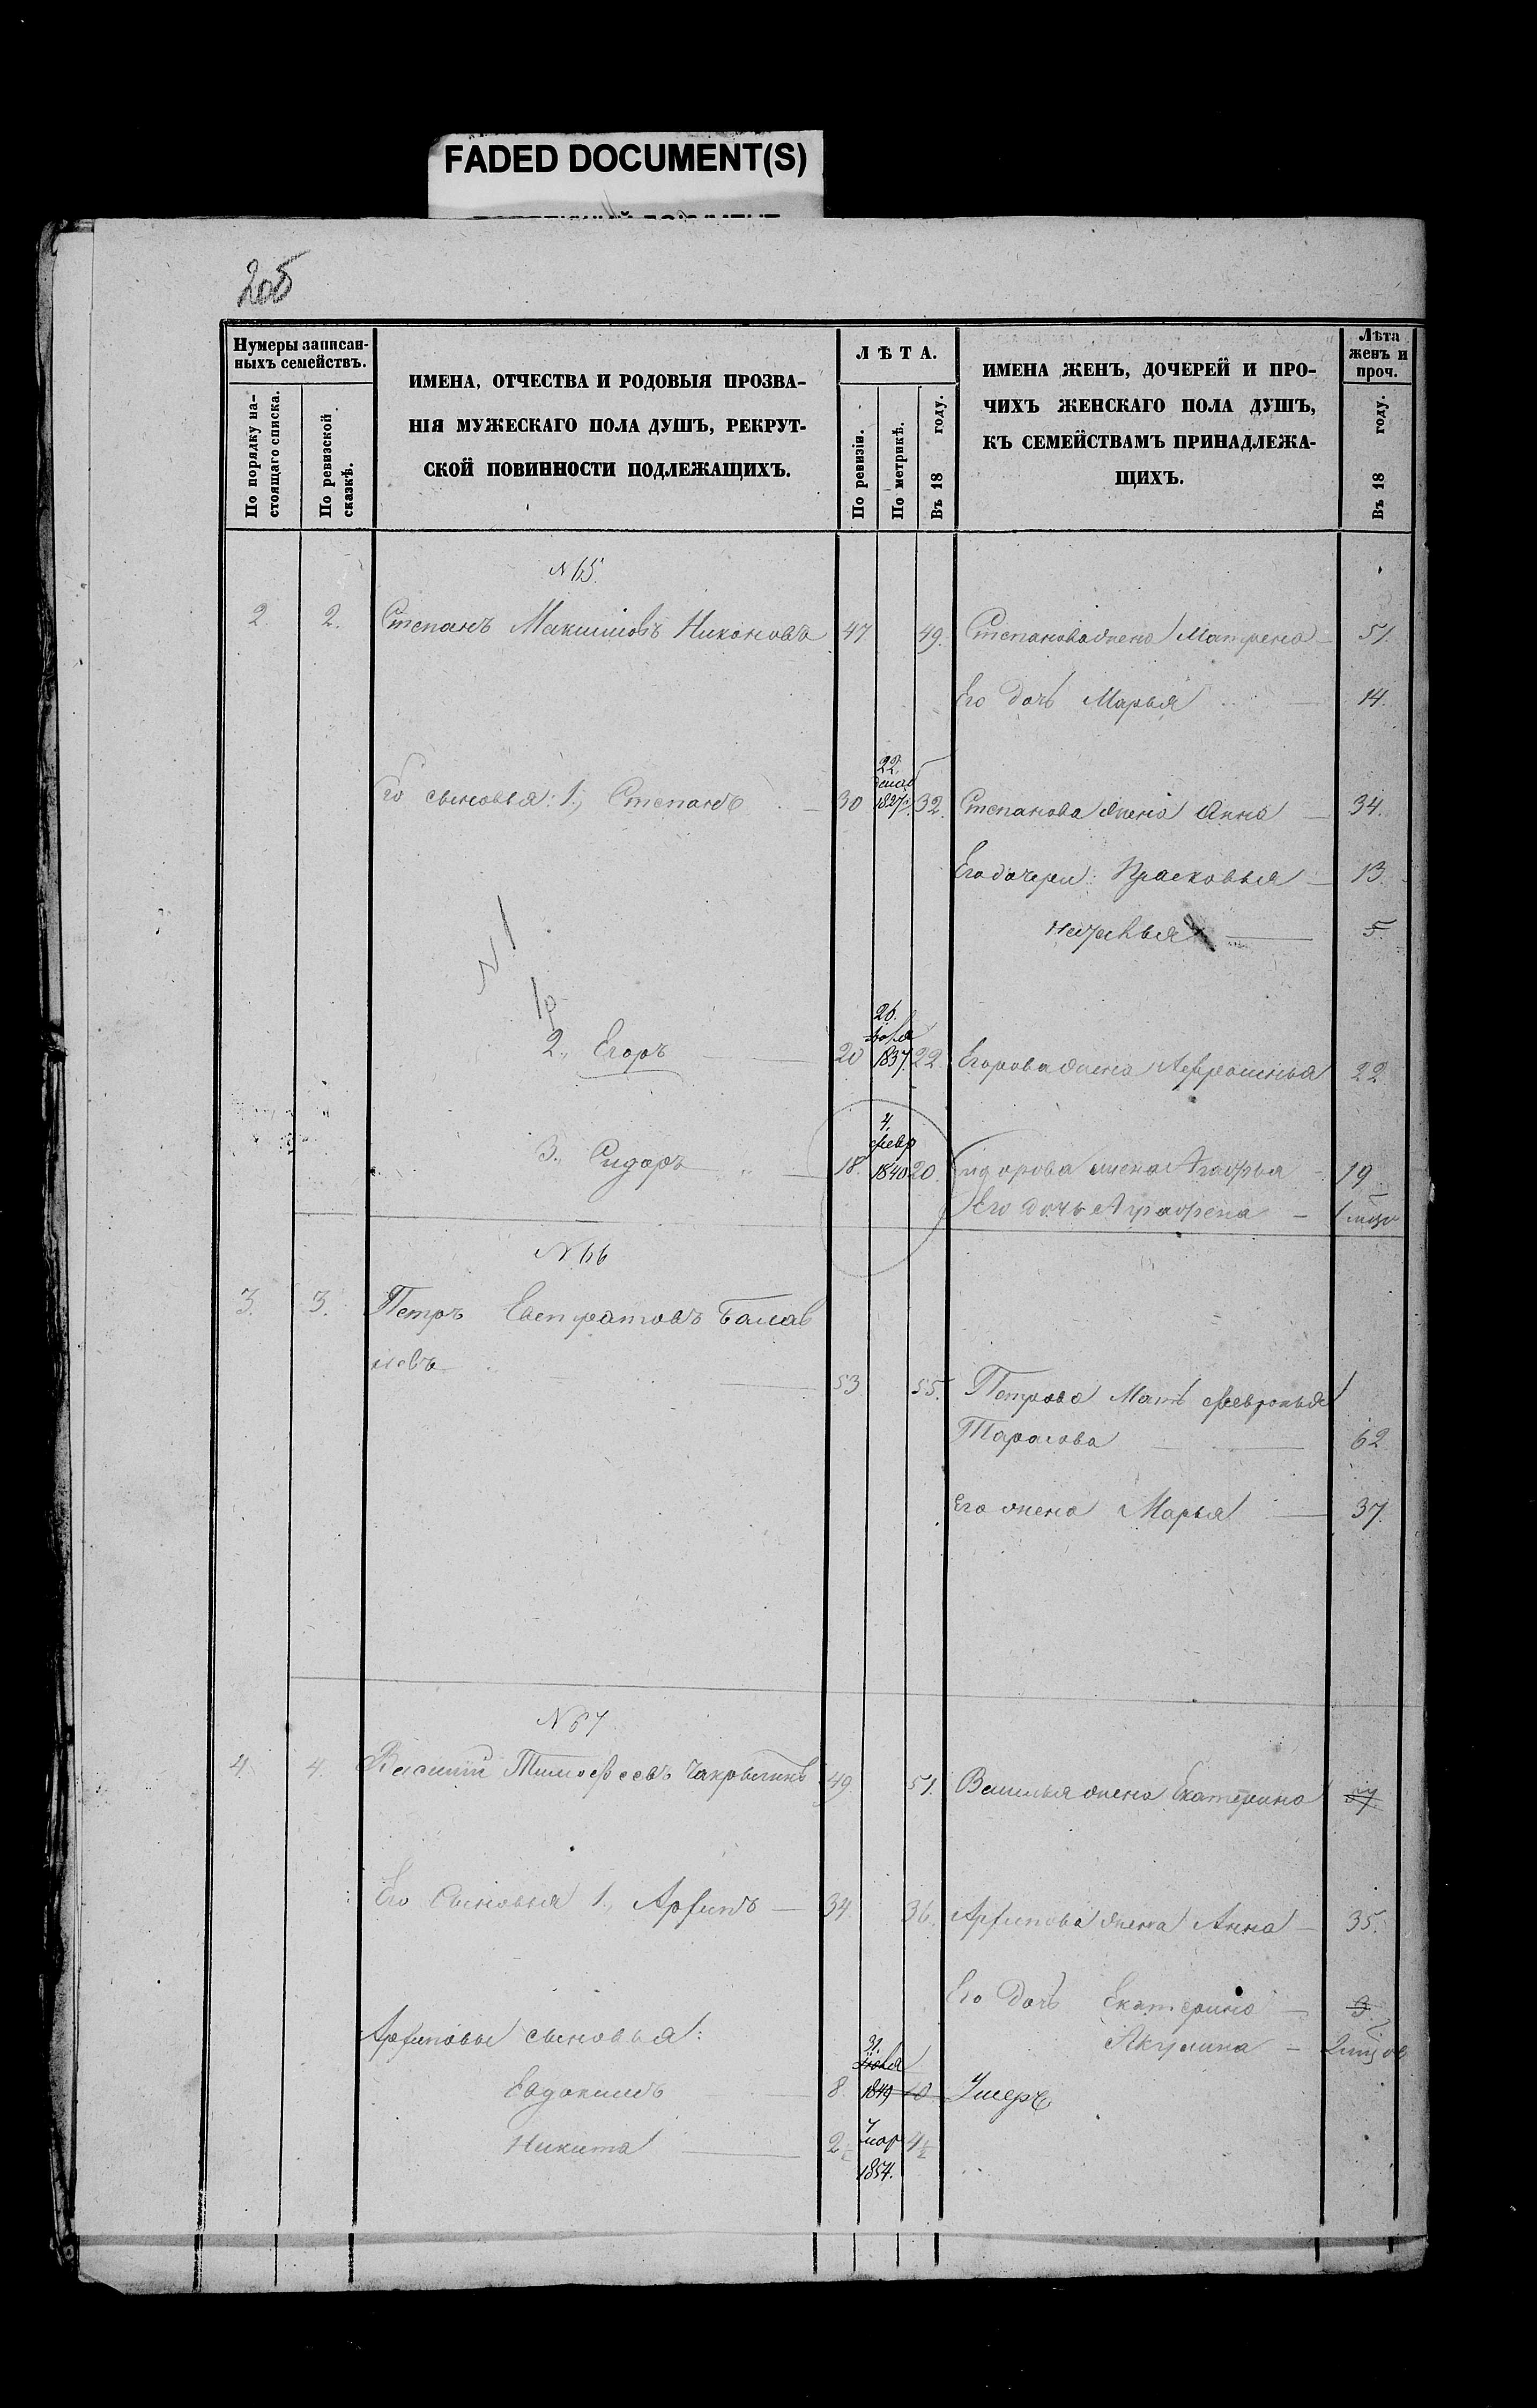 FADED DOCUMENT(S)
205
Нумеры записан-
ныхъ семействъ.
По порядку на-
стоящаго списка.
По ревизской
сказкѣ.
ИМЕНА, ОТЧЕСТВА И РОДОВЫЯ ПРОЗВА-
НІЯ МУЖЕСКАГО ПОЛА ДУШЪ, РЕКРУТ-
СКОЙ ПОВИННОСТИ ПОДЛЕЖАЩИХЪ.
ЛѢТА.
По ревизіи.
По метрикѣ.
Въ 18 году.
ИМЕНА ЖЕНЪ, ДОЧЕРЕЙ И ПРО-
ЧИХЪ ЖЕНСКАГО ПОЛА ДУШЪ,
КЪ СЕМЕЙСТВАМЪ ПРИНАДЛЕЖА-
ЩИХЪ.
Лѣта
женъ и
проч.
Въ 18 году.
N 65.
2. 2. Степанъ Макшиовъ Никоновъ 47 49. Степанова жена Матрена 51.
Его дочь Марья 14.
22
декаб
Его сыновья: 1., Степанъ 30 1827 32. Степанова жена Анна 34.
Его дочери: Прасковья 13.
Наталья 5.
N 1
1р
26.
2., Егоръ 20 1837. 22. Егорова жена 22
4.
февр
3., Сидоръ 18. 1840 20. Сидорова жена Агафья 19
Его дочь Аграфена 1 мѣся
N 66
3. 3. Петръ Евстратовъ Балав
невъ 53 55. Петрова Мать Февронья
Тарасова 62
Его жена Марья 37.
N 67
4. 4. Василій Тимофеевъ 49 51. Василья жена Екатерина 57
Его Сыновья 1., Архипъ 34. 36. Архипова жена Анна 35.
Его дочь Екатерина 3.
Архиповы сыновья: Акулина 2 мѣсяц
31.
Евдокимъ 8. 1849 10 Умеръ
7
Никита 2½ мар 4½
1854.